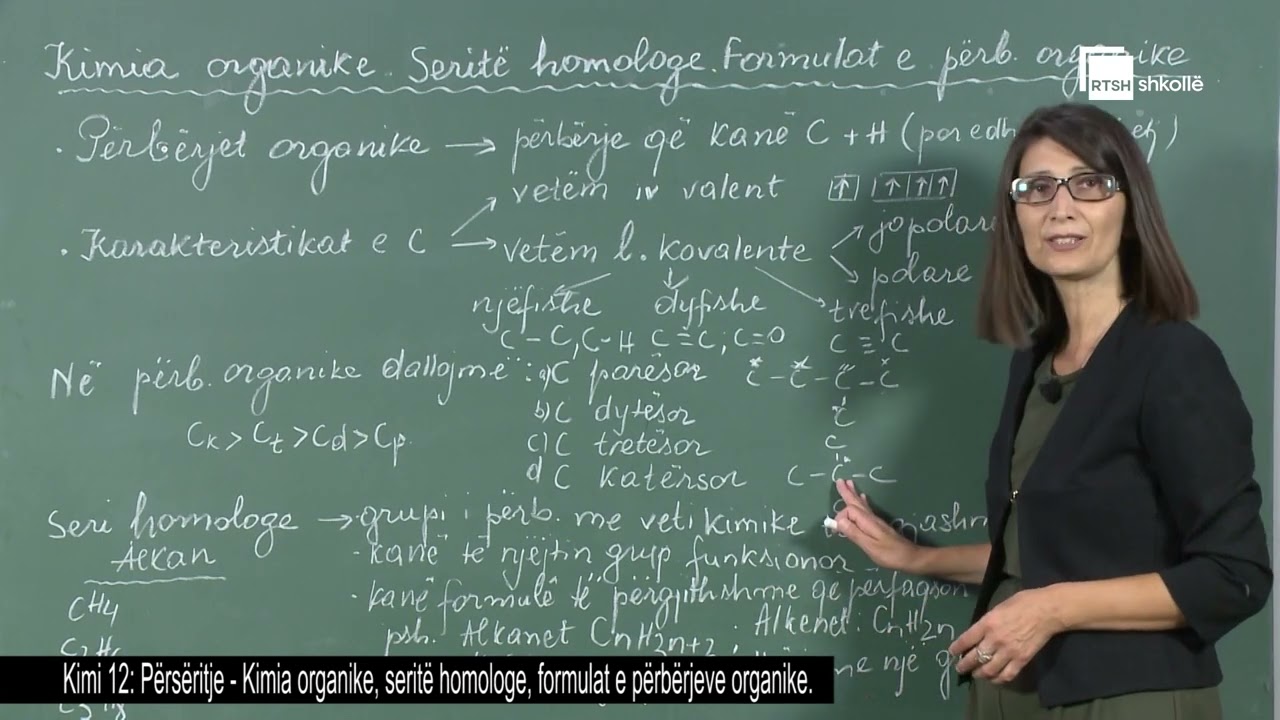 Kimia organike. Seritë homologe. Formulat e përb. organike
RTSH shkollë
. Përbërjet organike → përbërje që kanë C + H (por edh
vetëm iv valent ↑ ↑ ↑ ↑
. Karakteristikat e C → vetëm l. kovalente
jopolare
polare
njëfishe dyfishe trefishe
C - C, C - H C = C, C = O C ≡ C
Në përb. organike dallojmë: a) C parësor C - C - C - C
b) C dytësor C
Ck > Ct > Cd > Cp c) C tretësor C
d C katërsor C - C - C
Seri homologe → grupi i përb. me veti kimike
Alkan · kanë të njëjtin grup funksionor
CH4 · kanë formulë të përgjithshme që përfaqson
psh. Alkanet CnH2n+2 ; Alkenet CnH2n
me një
Kimi 12: Përsëritje - Kimia organike, seritë homologe, formulat e përbërjeve organike.